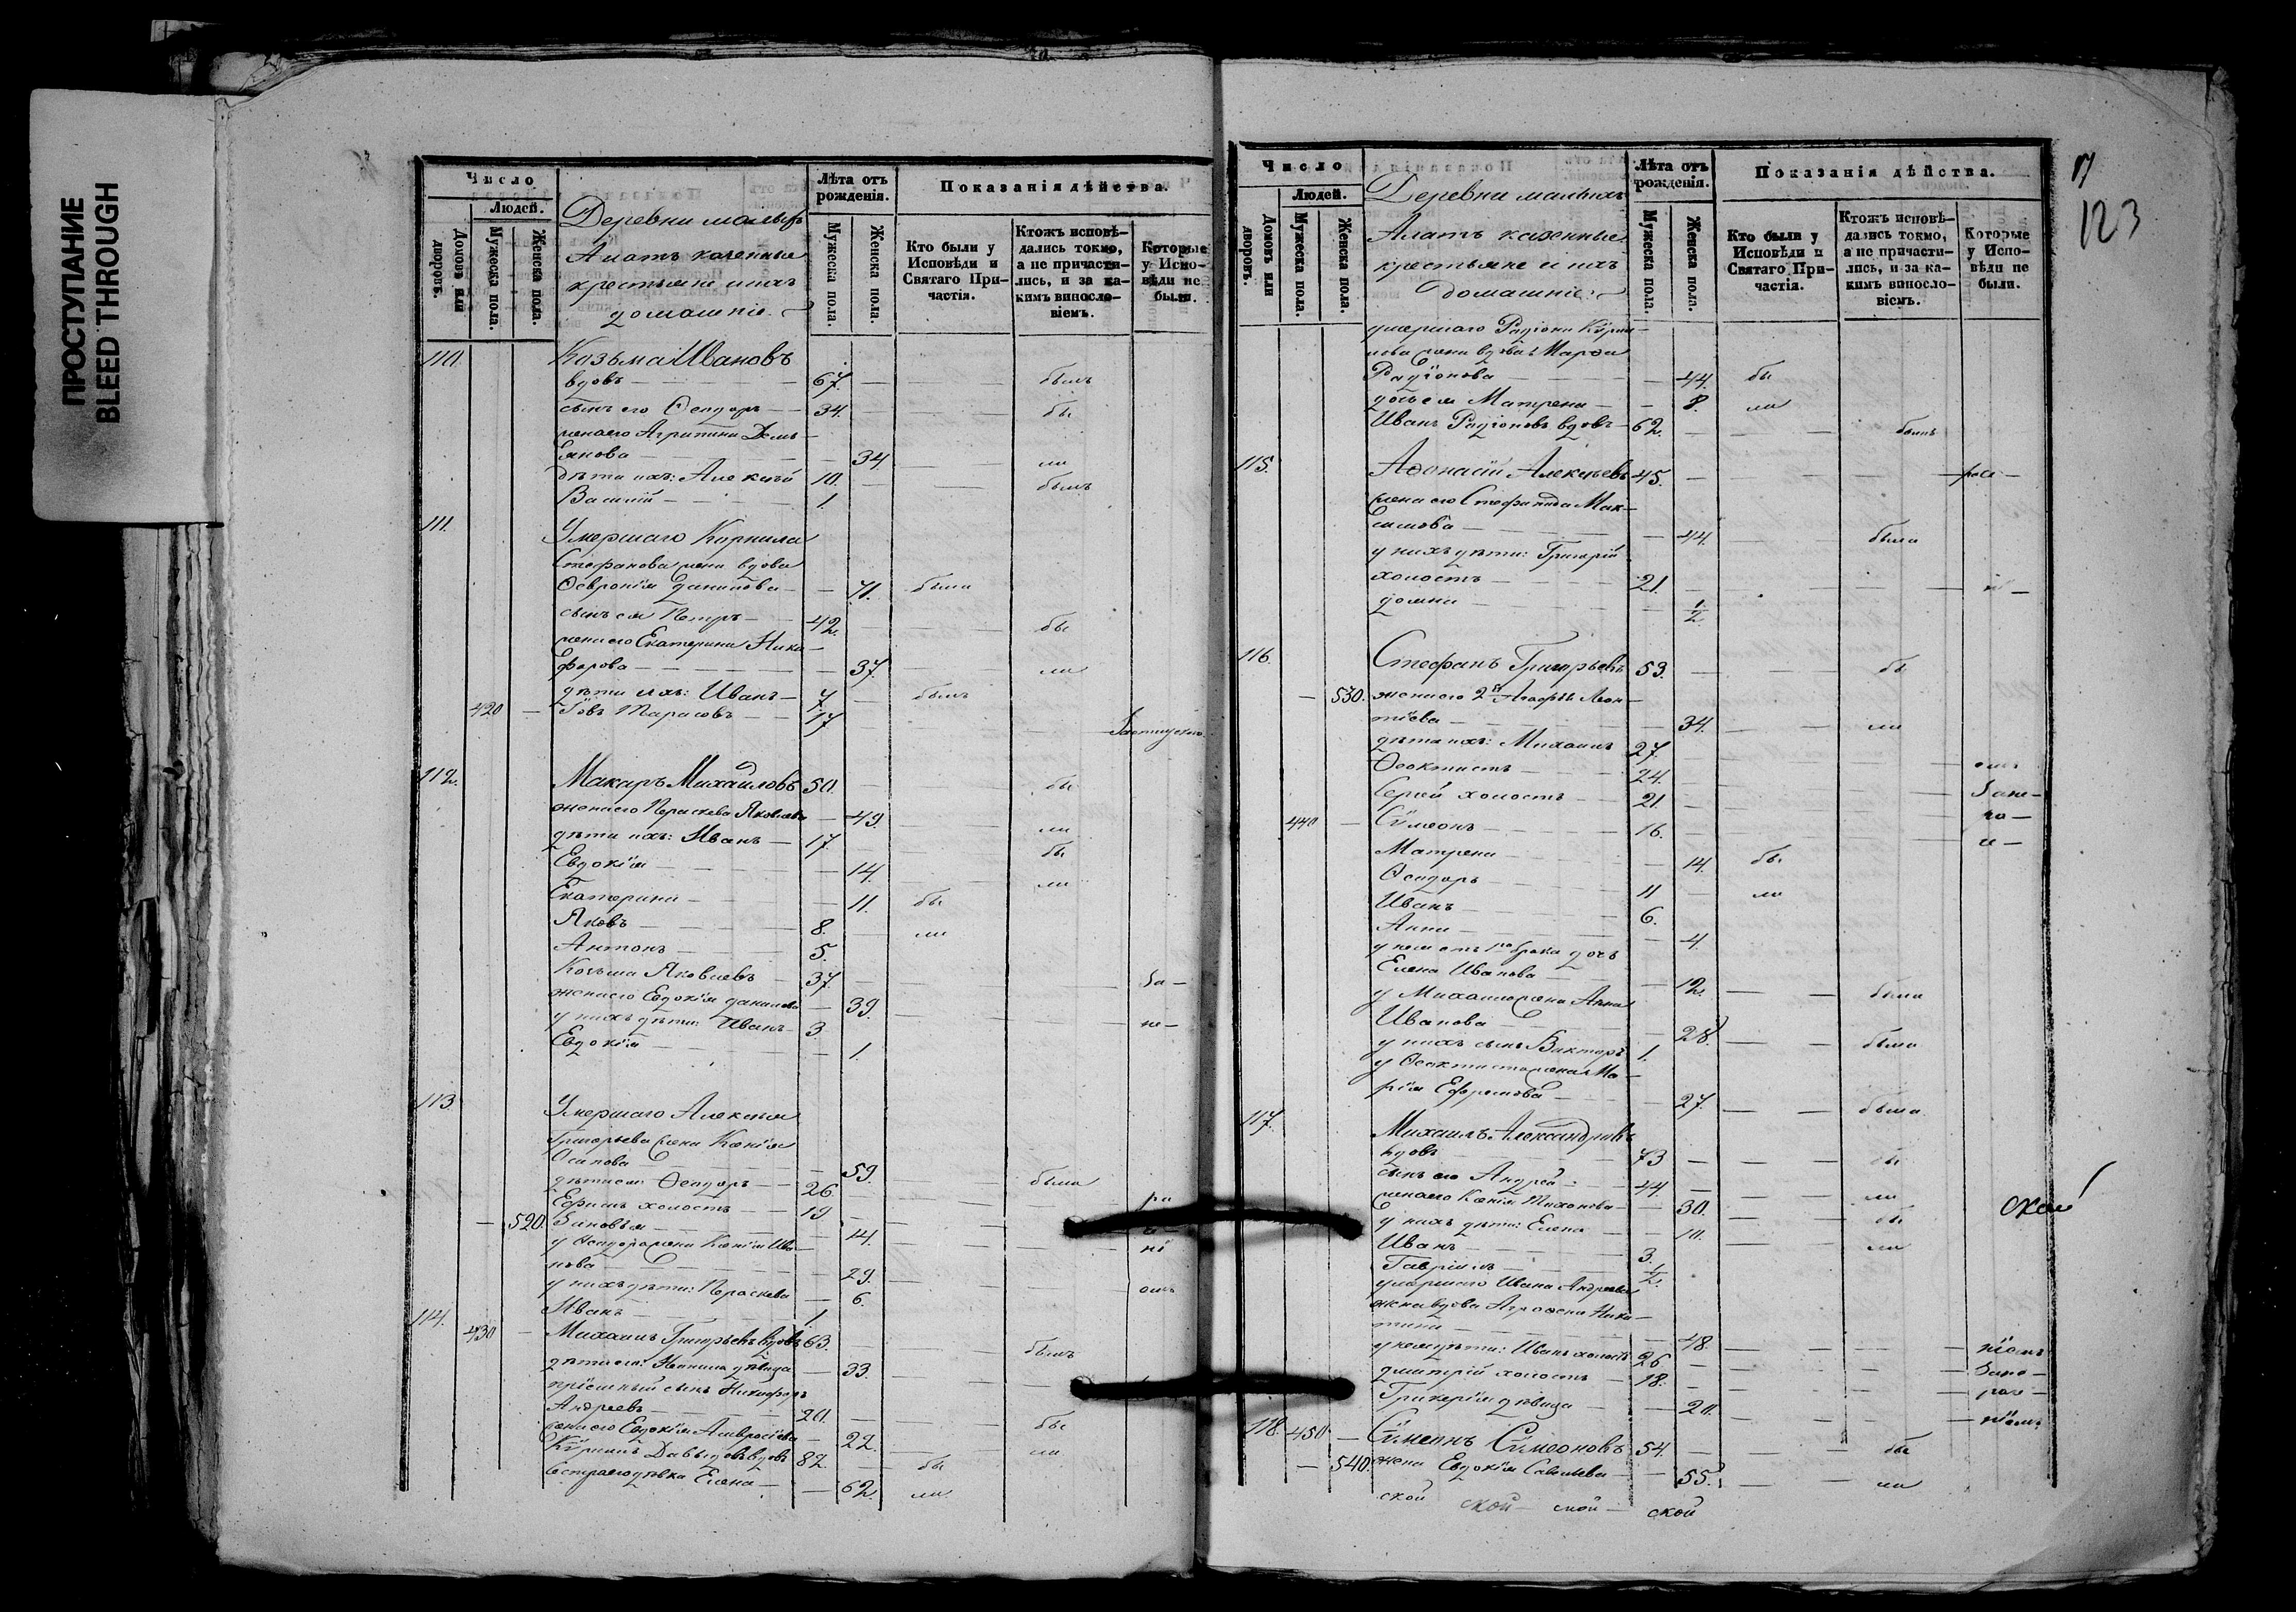 ПРОСТУПАНИЕ
BLEED THROUGH
Число
Людей.
Домовъ или дворовъ.
Мужеска пола.
Женска пола.
Деревни малыхъ
Алатъ казенные
крестьяне и ихъ
домашніе
Лѣта отъ рожденія.
Мужеска пола.
Женска пола.
Показанія дѣйства.
Кто были у Исповѣди и Святаго Причастія.
Ктожъ исповѣдались токмо, а не причастились, и за какимъ винословіемъ.
Которые у Исповѣди не были.
110. Козьма Ивановъ
вдовъ 67. былъ
сынъ его Ѳеодоръ 34. бы
жена его Агрипина Демь-
янова 34 ли
дѣти ихъ: Алексѣй 10. былъ
Василій 1.
111. Умершаго Корнила
Стефанова жена вдова
Ѳевронія Данилова 71. была
сынъ ея Петръ 42. бы
жена его Екатерина Ники-
форова 37. ли
дѣти ихъ: Иванъ 7. былъ
420 Іовъ Тарасовъ 17.
112. Макаръ Михайловъ 50. бы
жена его Параскева Яковлева 49. ли
дѣти ихъ: Иванъ 17. бы
Евдокія 14. ли
Екатерина 11. бы
Яковъ 8. ли
Антонъ 5.
Козьма Яковлевъ 37. за-
жена его Евдокія Данилова 39.
у нихъ дѣти: Иванъ 3. не-
Евдокія 1.
113 Умершаго Алексѣя
Григорьева жена Ксенія
Осипова 59. была
дѣти ея: Ѳеодоръ 26. ра
Ефимъ холостъ 19
520. Зиновья 14.
у Ѳеодора жена Ксенія Ива-
нова 29. ні
у нихъ дѣти: Параскева 6. емъ
Иванъ 1.
114. 430 Михаилъ Григорьевъ вдовъ 63. былъ
дѣти его: Неонила дѣвица 33.
пріемный сынъ Никифоръ
Андреевъ 20. бы
жена его Евдокія Амвросіева 22. ли
Кирилъ Давыдовъ вдовъ 82. бы
Сестра его дѣвка Елена 62. ли
Число
Людей.
Домовъ или дворовъ.
Мужеска пола.
Женска пола.
Деревни малыхъ
Алатъ казенные
крестьяне и ихъ
домашніе
Лѣта отъ рожденія.
Мужеска пола.
Женска пола.
Показанія дѣйства.
Кто были у Исповѣди и Святаго Причастія.
Ктожъ исповѣдались токмо, а не причастились, и за какимъ винословіемъ.
Которые у Исповѣди не были.
123
умершаго Радіона Кирил-
лова жена вдова Марѳа
Радіонова 44. бы
дочь ея Матрена 8. ла
Иванъ Радіоновъ вдовъ 62. былъ
115. Аѳонасій Алексѣевъ 45.
жена его Стефанида Мак-
симова 44. была
у нихъ дѣти: Григорій
холостъ 21.
Домна 1/2
116. Стефанъ Григорьевъ 53. бы
530. жена его 2я Агафья Леон-
тіева 34. ли
дѣти ихъ: Михаилъ 27.
Ѳеоктистъ 24. емъ
Сергей холостъ 21.
440 Симеонъ 16.
Матрена 14. бы
Ѳеодоръ 11 ли
Иванъ 6.
Анна 4.
у нея отъ 1го брака дочь
Елена Иванова 12. была
у Михаила жена Анна
Иванова 28. была
у нихъ сынъ Викторъ 1.
у Ѳеоктиста жена Ма-
рія Ефремова 27. была
117. Михаилъ Александровъ
вдовъ 73 бы
сынъ его Андрей 44. ли
жена его Ксенія Тихонова 30. бы
у нихъ дѣти: Елена 10. ли
Иванъ 3.
Гавріилъ 1/2
умершаго Ивана Андреева
жена вдова Агрофена Ники-
тина 48. ніемъ
у нея дѣти: Иванъ холостъ 26
Дмитрій холостъ 18.
Гликерія дѣвица 20. ніемъ
118. 450 Симеонъ Симеоновъ 54. бы
540. жена Евдокія Савельева 55. ли
ской
ской ской ской ской